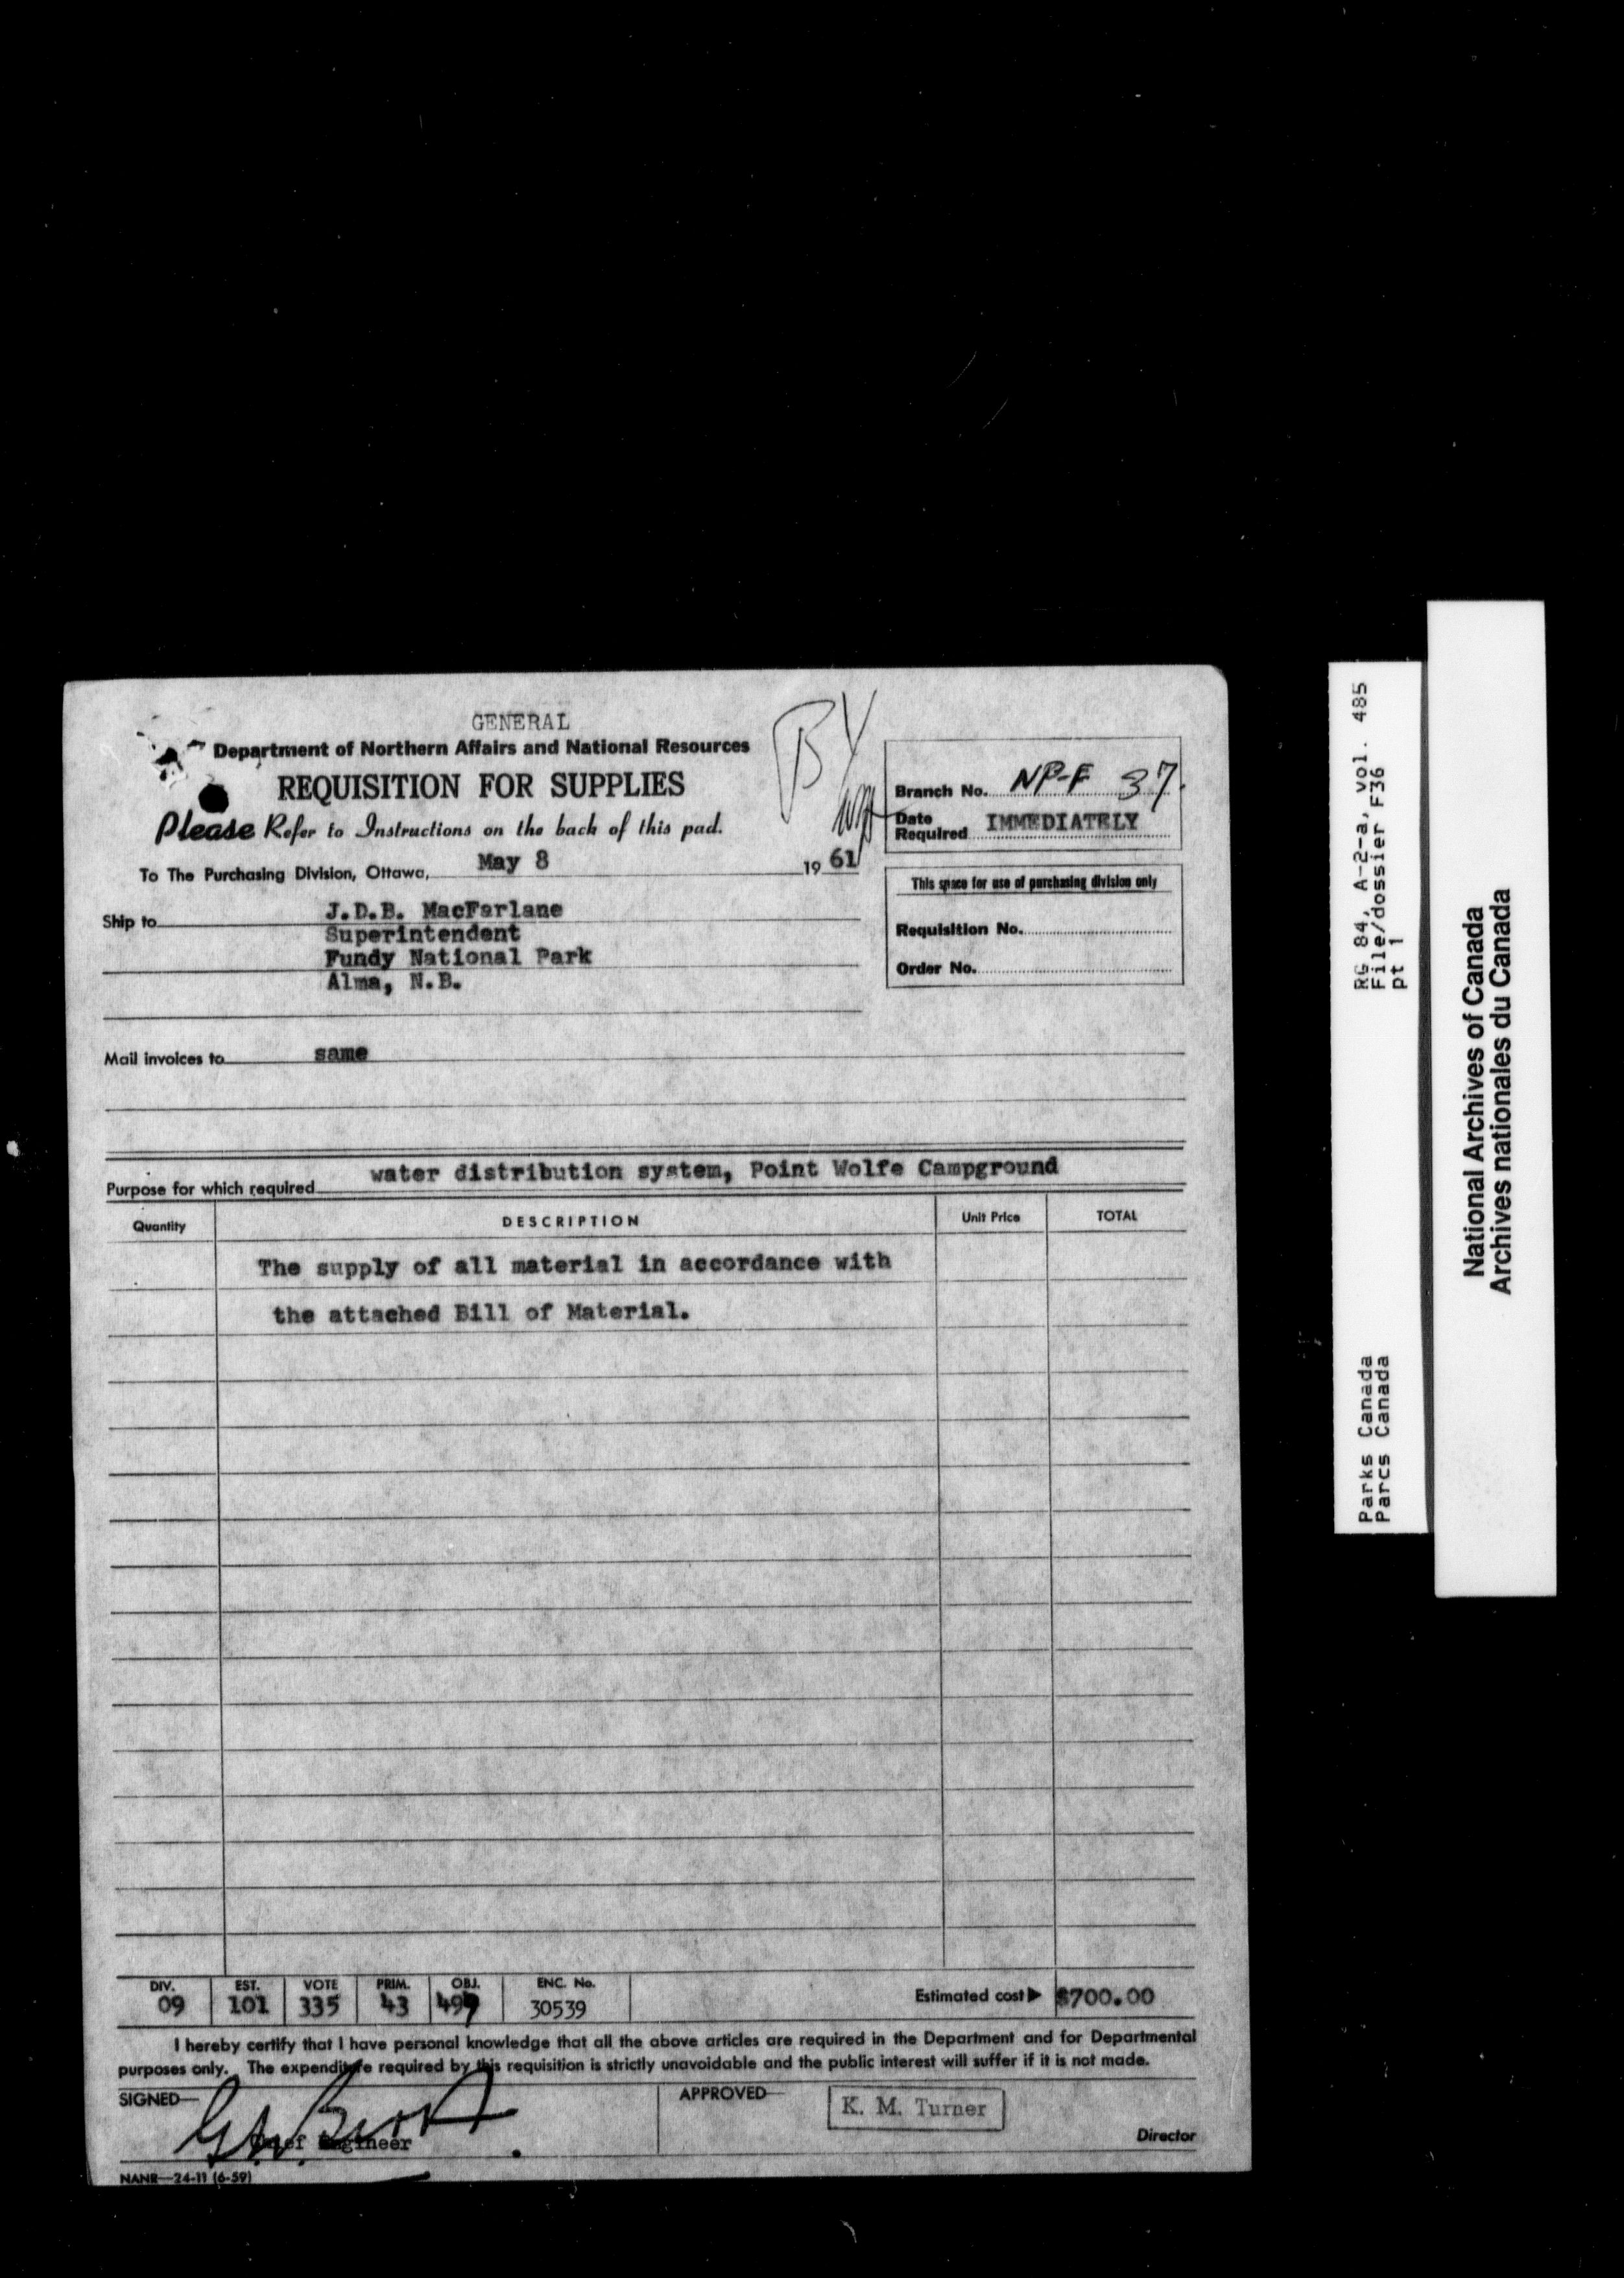 GENERAL
Department of Northern Affairs and National Resources
REQUISITION FOR SUPPLIES
Please Refer to Instructions on the back of this pad.
To The Purchasing Division, Ottawa, May 8 1961
Ship to J.D.B. MacFarlane
Superintendent
Fundy National Park
Alma, N.B.
BY
Branch No. NP-F 37.
Date
Required IMMEDIATELY
This space for use of purchasing division only
Requisition No.
Order No.
Mail invoices to same
Purpose for which required water distribution system, Point Wolfe Campground
Quantity DESCRIPTION Unit Price TOTAL
The supply of all material in accordance with
the attached Bill of Material.
DIV. EST. VOTE PRIM. OBJ. ENC. No.
09 101 335 43 499 30539 Estimated cost ▶ $700.00
I hereby certify that I have personal knowledge that all the above articles are required in the Department and for Departmental
purposes only. The expenditure required by this requisition is strictly unavoidable and the public interest will suffer if it is not made.
SIGNED
Chief Engineer
APPROVED
K. M. Turner
Director
NANR—24-11 (6-59)
RG 84, A-2-a, vol. 485
File/dossier F36
pt 1
Parks Canada
Parcs Canada
National Archives of Canada
Archives nationales du Canada